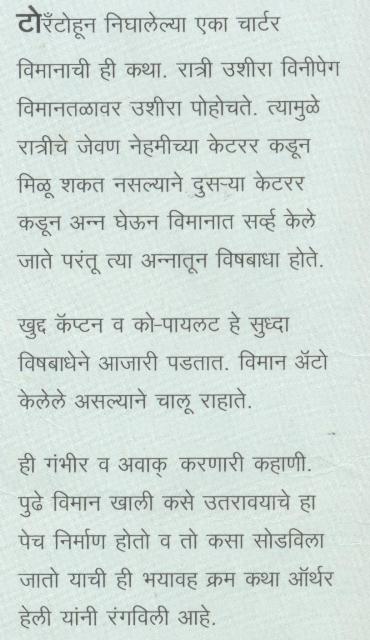 टोरँटोहून निघालेल्या एका चार्टर
विमानाची ही कथा. रात्री उशीरा विनीपेग
विमानतळावर उशीरा पोहोचते. त्यामुळे
रात्रीचे जेवण नेहमीच्या केटरर कडून
मिळू शकत नसल्याने दुसऱ्या केटरर
कडून अन्न घेऊन विमानात सर्व्ह केले
जाते परंतू त्या अन्नातून विषबाधा होते.
खुद्द कॅप्टन व को-पायलट हे सुध्दा
विषबाधेने आजारी पडतात. विमान ॲटो
केलेले असल्याने चालू राहाते.
ही गंभीर व अवाक् करणारी कहाणी.
पुढे विमान खाली कसे उतरावयाचे हा
पेच निर्माण होतो व तो कसा सोडविला
जातो याची ही भयावह क्रम कथा ऑर्थर
हेली यांनी रंगविली आहे.